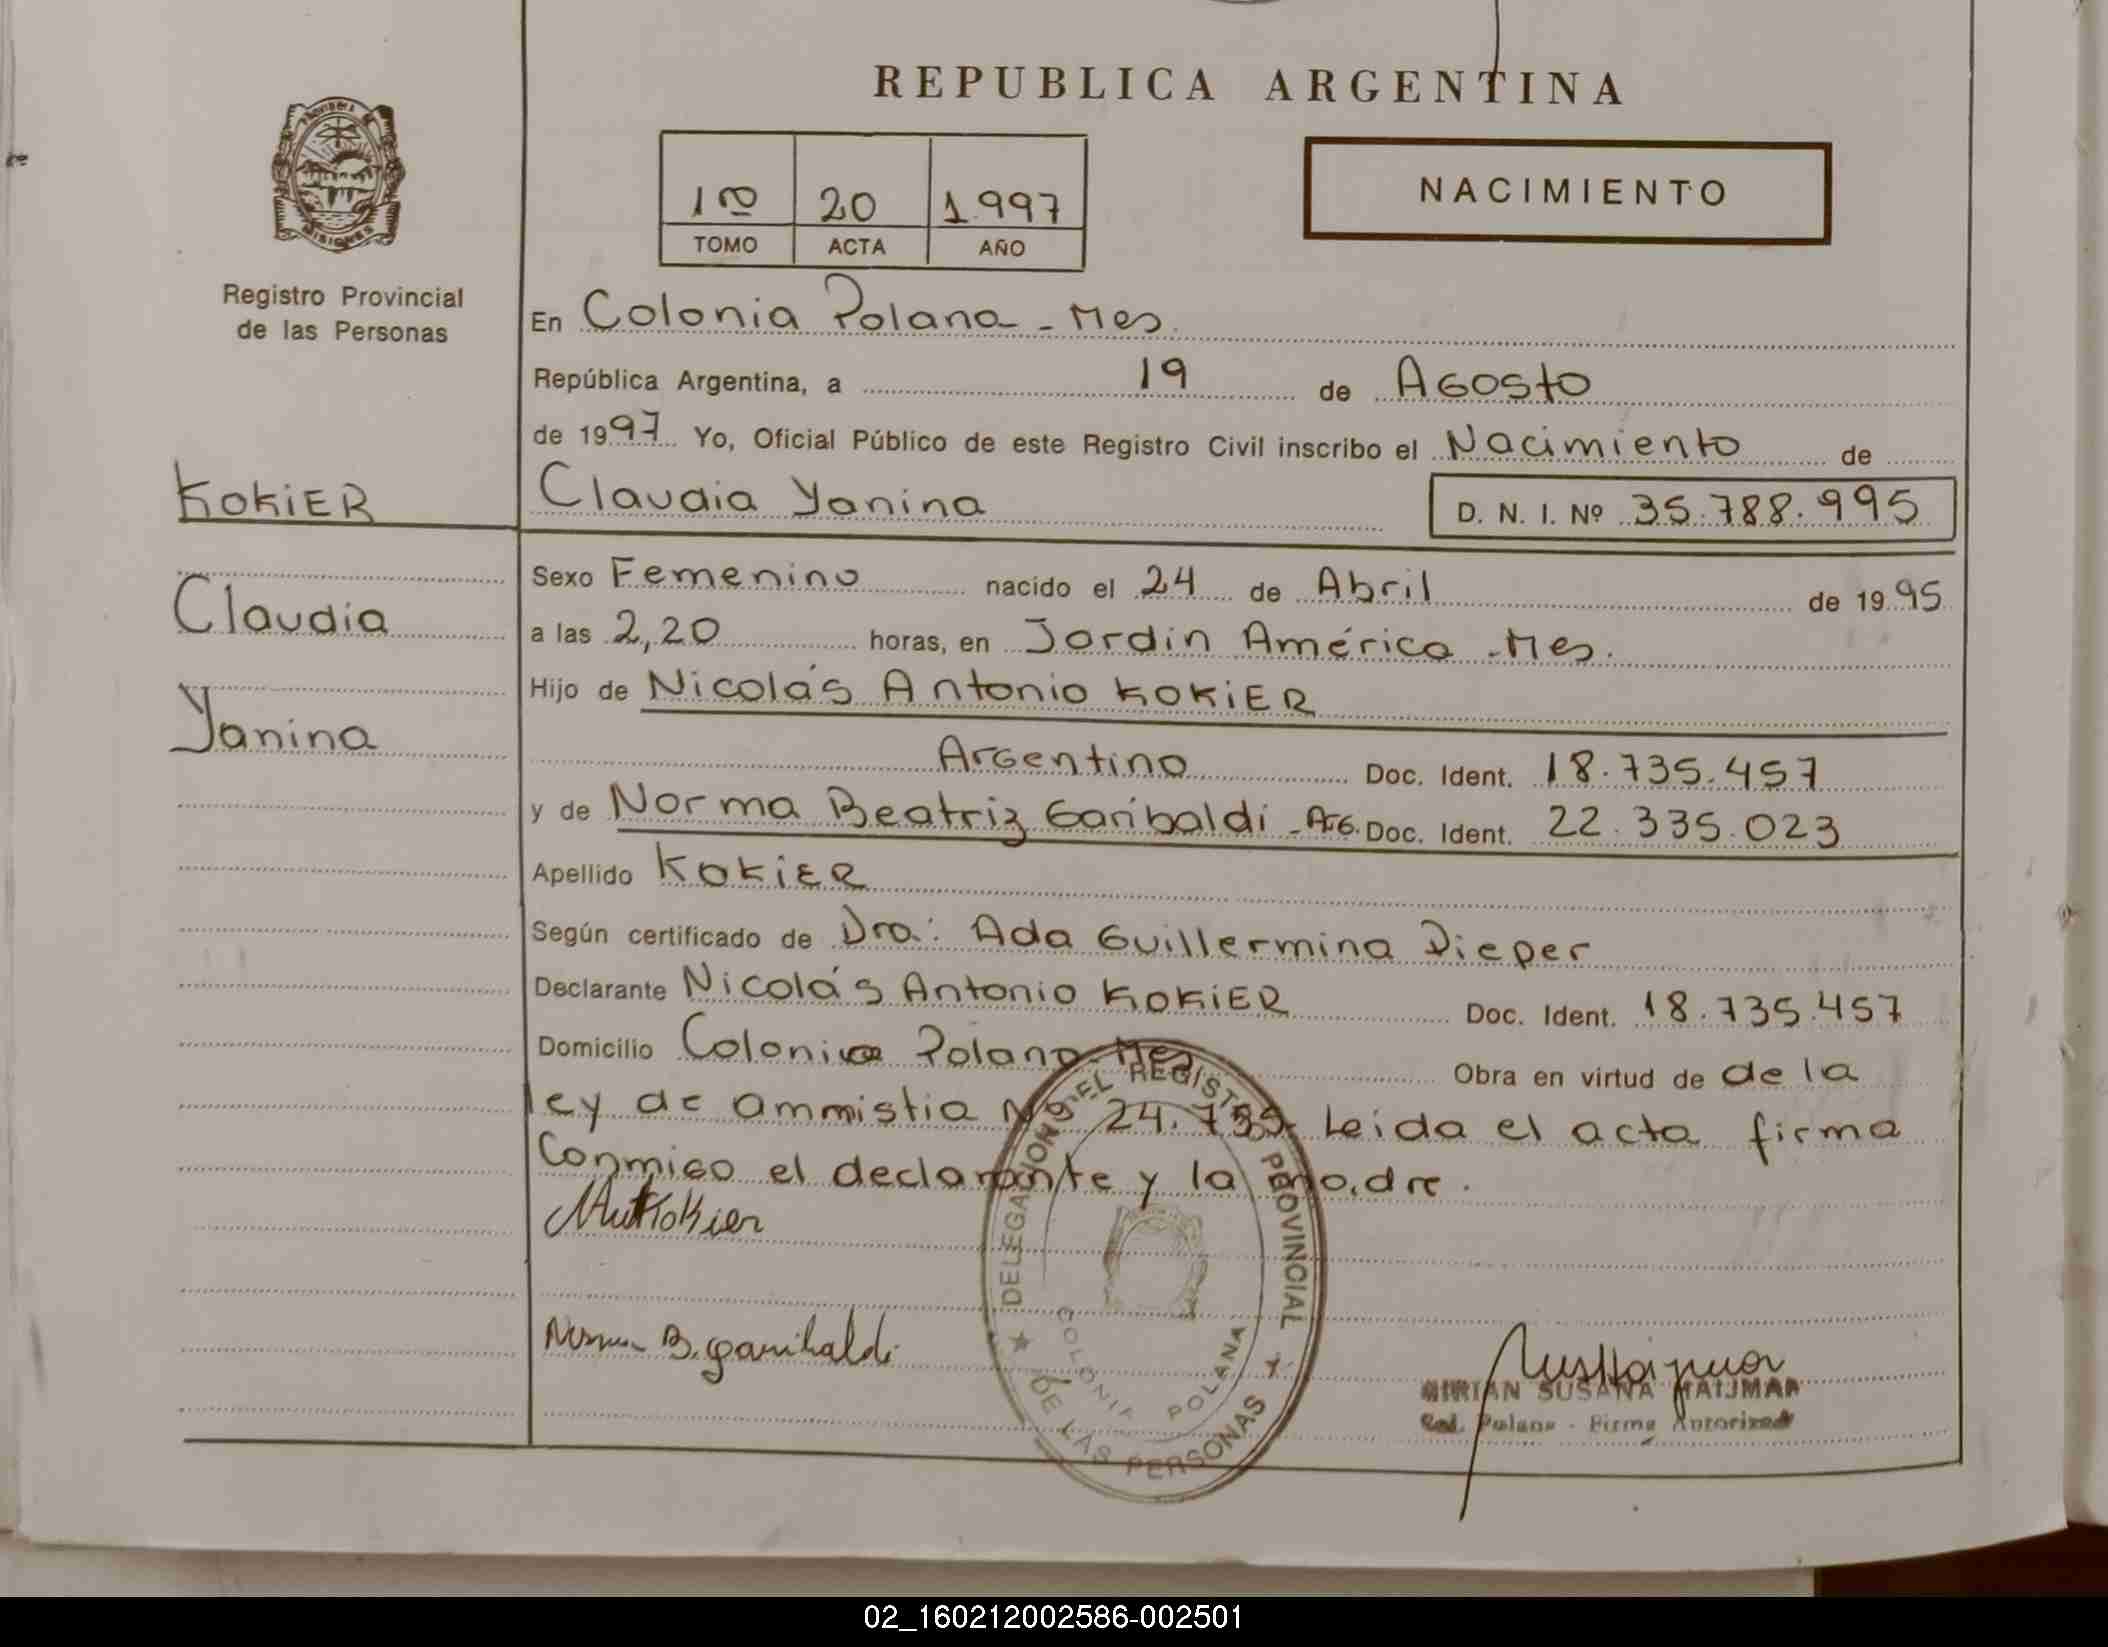 REPUBLICA ARGENTINA
PROVINCIA
MISIONES
Registro Provincial
de las Personas
1º 20 1.997
TOMO ACTA AÑO
NACIMIENTO
En Colonia Polana - Mes.
República Argentina, a 19 de Agosto
de 1997 Yo, Oficial Público de este Registro Civil inscribo el Nacimiento de
KOKIER
Claudia Yanina D. N. I. Nº 35.788.995
Sexo Femenino nacido el 24 de Abril de 1995
Claudia
a las 2,20 horas, en Jardin América - Mes.
Hijo de Nicolás Antonio KOKIER
Yanina
Argentino Doc. Ident. 18.735.457
y de Norma Beatriz Garibaldi - Arg. Doc. Ident. 22.335.023
Apellido KOKIER
Según certificado de Dra: Ada Guillermina Dieper
Declarante Nicolás Antonio KOKIER Doc. Ident. 18.735.457
Domicilio Colonia Polana - Mes Obra en virtud de de la
ley de ammistia Nº 24.755. Leida el acta firma
Conmigo el declarante y la madre.
Kokier
DELEGACION DEL REGISTRO PROVINCIAL
DE LAS PERSONAS
COLONIA POLANA
Norma B. garibaldi
MIRIAN SUSANA HAIJMAN
Col. Polana - Firma Autorizad
02_160212002586-002501